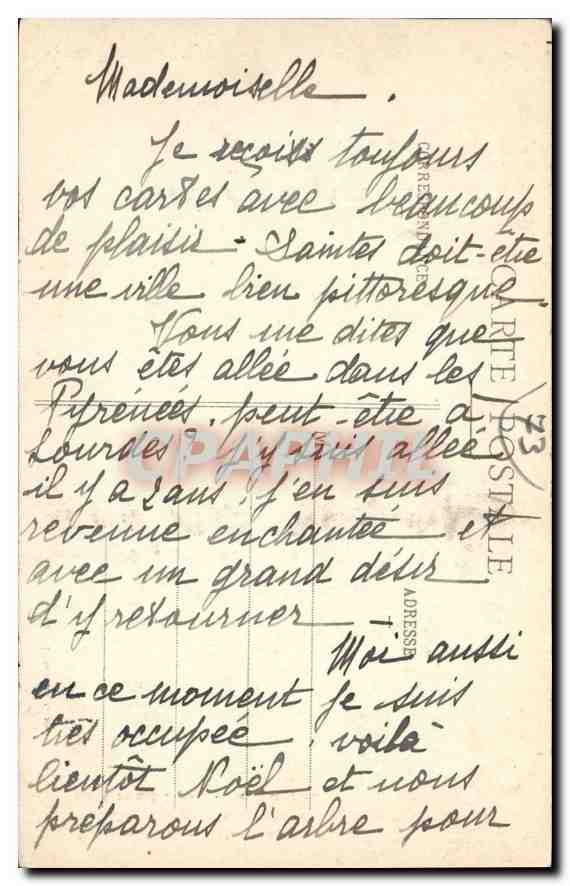 Mademoiselle.
Je reçois toujours
vos cartes avec beaucoup
de plaisir - Saintes doit-être
une ville bien pittoresque
Vous me dites que
vous êtes allée dans les
Pyrénées. peut-être à
Lourdes? J'y suis allée
il y a 2 ans. J'en suis
revenue enchantée et
avec un grand désir
d'y retourner -
Moi aussi
en ce moment je suis
très occupée. voilà
bientôt Noël et nous
préparons l'arbre pour
CARTE POSTALE
CORRESPONDANCE
ADRESSE
73
CPAPHIL